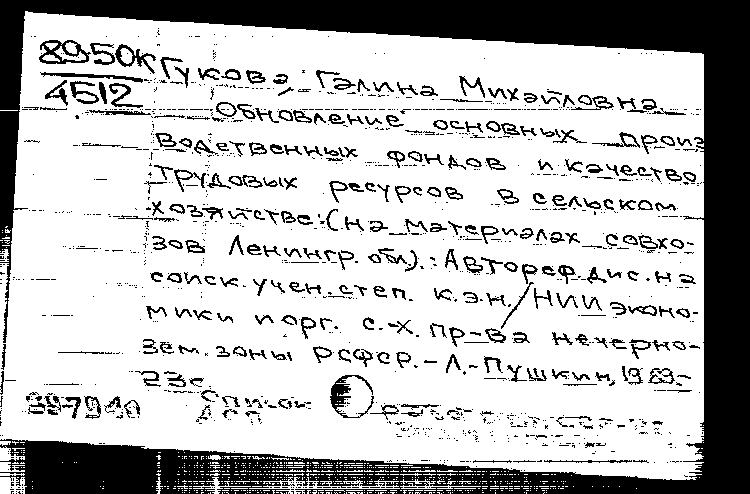 8950К
4512
Гукова, Галина Михайловна.
Обновление основных произ
водственных фондов и качество
трудовых ресурсов в сельском
хозяйстве: (на материалах совхо-
зов Ленингр. обл.): Автореф. дис. на
соиск. учен. степ. к.э.н. / НИИ эконо-
мики и орг. с.-х. пр-ва нечерно-
зем. зоны РСФСР. - Л.-Пушкин, 1989.-
23с.
Список
ДСП